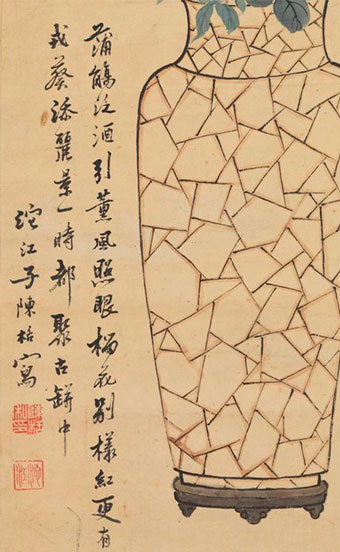 蒲觴泛酒引薰風照眼榴花別樣紅更有
戎葵添麗景一時都聚古缾中
沱江子陳栝寫